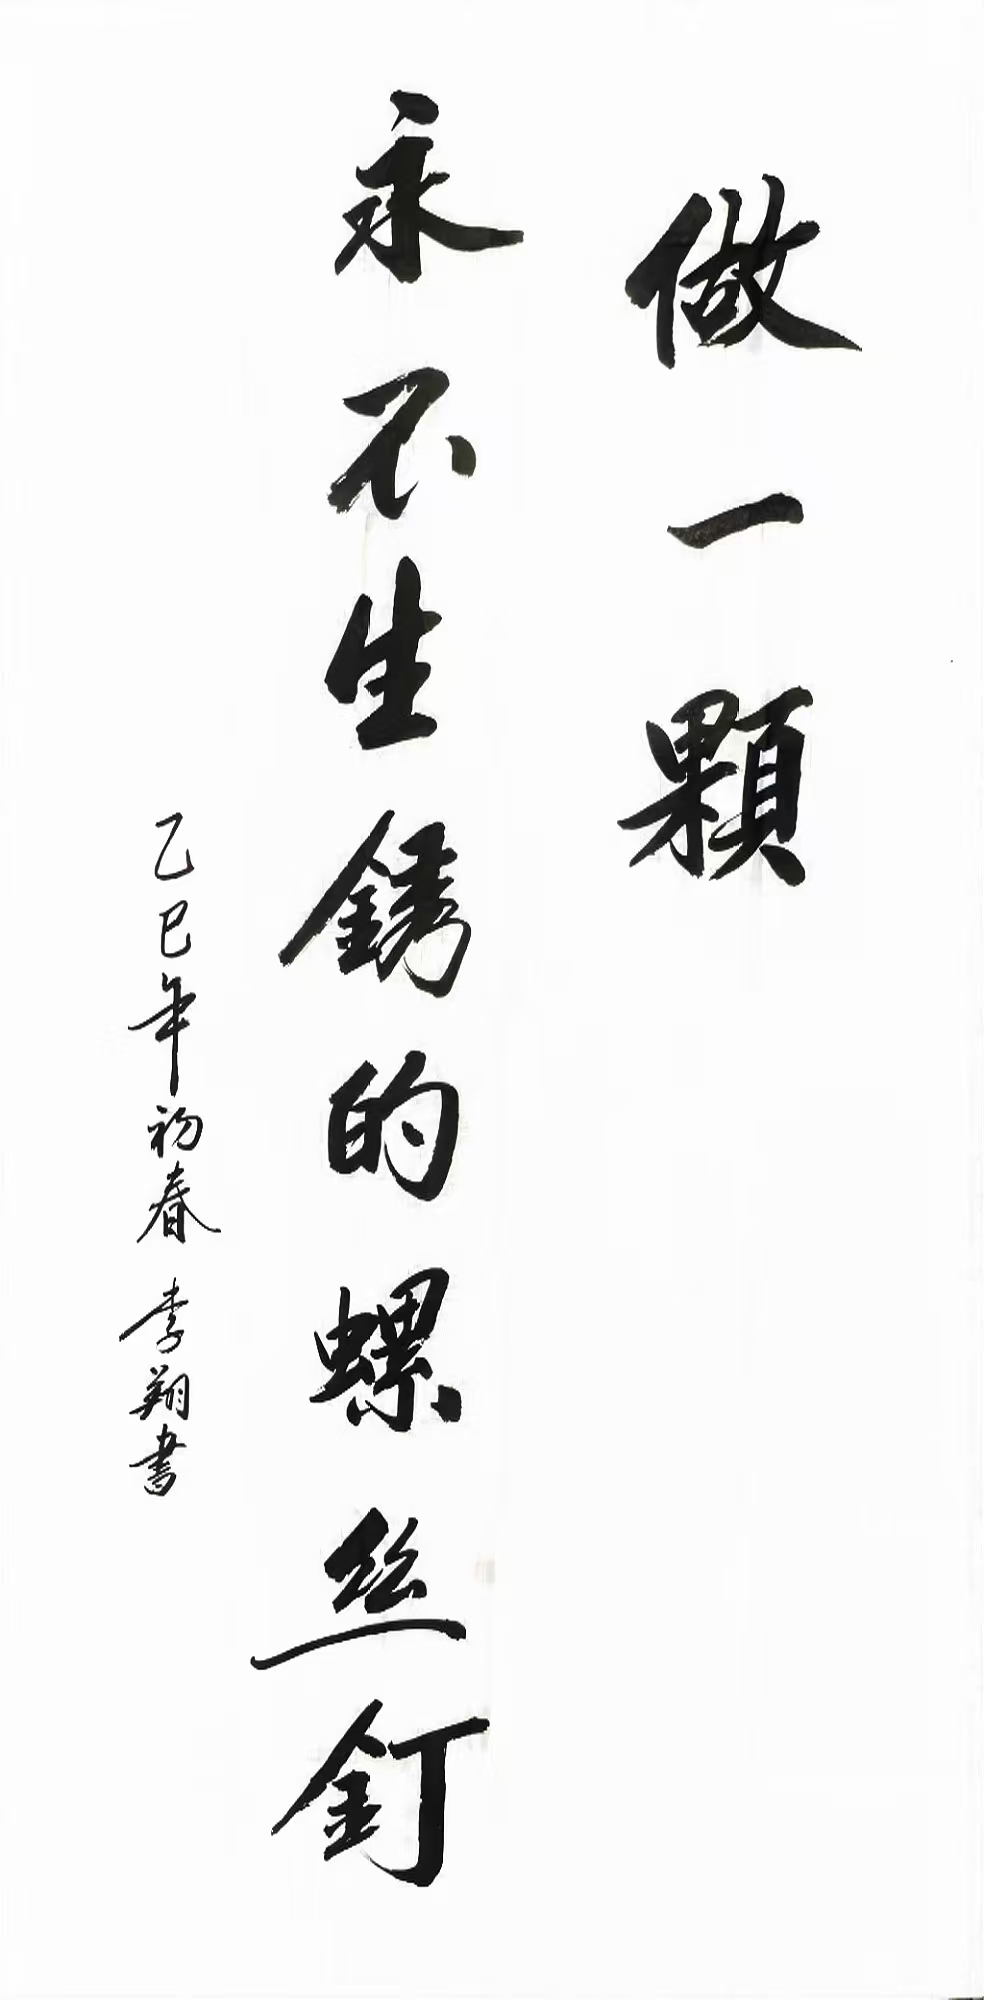 做一顆
永不生銹的螺丝釘
乙巳年初春 李翔書